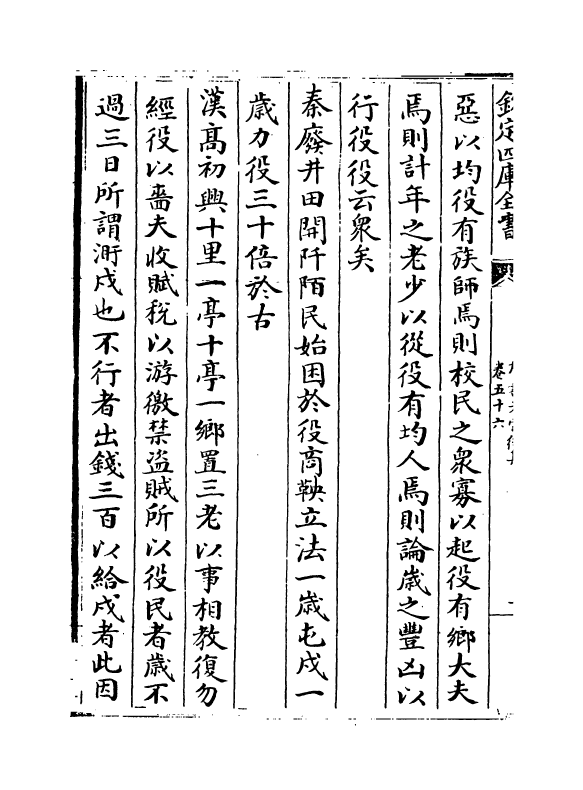 欽定四庫全書
卷五十六
惡以均役有族師焉則校民之衆寡以起役有鄉大夫
焉則計年之老少以從役有均人焉則論歲之豐凶以
行役役云衆矣
秦廢井田開阡陌民始困於役商鞅立法一歲屯戍一
歲力役三十倍於古
漢髙初興十里一亭十亭一鄉置三老以事相教復勿
經役以嗇夫收賦稅以游徼禁盜賊所以役民者歲不
過三日所謂淛戍也不行者出錢三百以給戍者此因